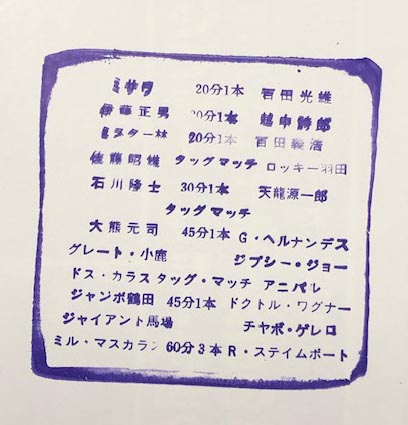 ミサワ 20分1本 百田光雄
伊藤正男 20分1本 越中詩郎
ミスター林 20分1本 百田義浩
佐藤昭雄 タッグマッチ ロッキー羽田
石川隆士 30分1本 天龍源一郎
タッグマッチ
大熊元司 45分1本 G・ヘルナンデス
グレート・小鹿 ジプシー・ジョー
ドス・カラス タッグ・マッチ アニバル
ジャンボ鶴田 45分1本 ドクトル・ワグナー
ジャイアント馬場 チャボ・ゲレロ
ミル・マスカラス 60分3本 R・ステイムボート